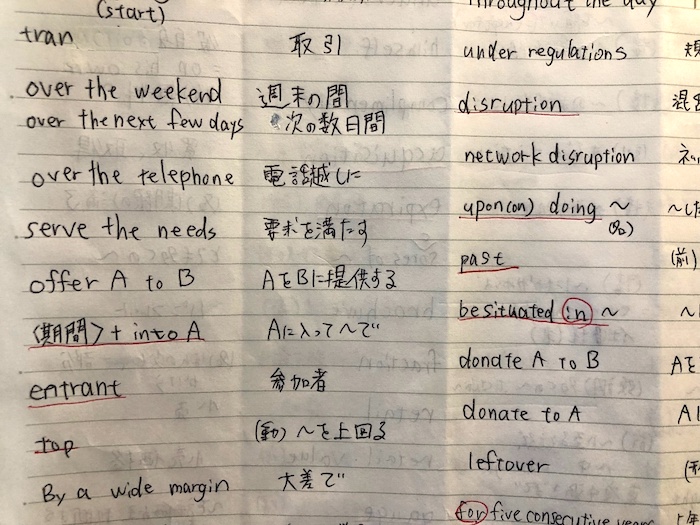 (start)
tran 取引
over the weekend 週末の間
over the next few days 次の数日間
over the telephone 電話越しに
serve the needs 要求を満たす
offer A to B AをBに提供する
〈期間〉+ into A Aに入って〜で
entrant 参加者
top (動) 〜を上回る
By a wide margin 大差で
throughout the day
under regulations
disruption 混
network disruption ネッ
upon(on) doing 〜 〜した
past (前)
be situated in 〜 〜
donate A to B Aを
donate to A A
leftover
for five consecutive years